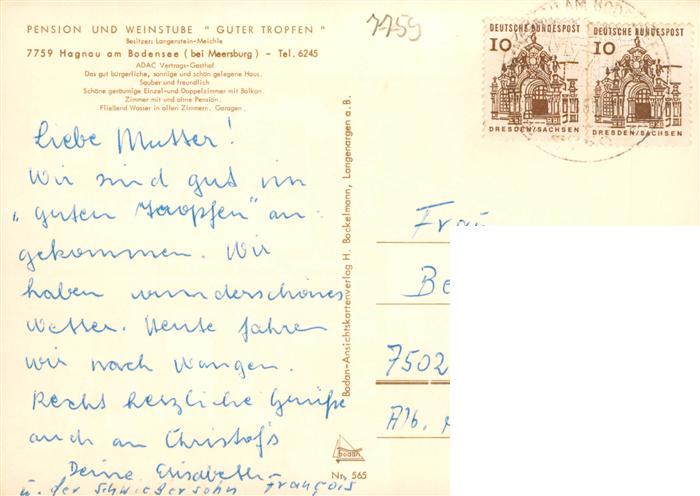 PENSION UND WEINSTUBE " GUTER TROPFEN "
Besitzer: Langenstein-Meichle
7759 Hagnau am Bodensee (bei Meersburg) – Tel. 6245
ADAC Vertrags-Gasthof
Das gut bürgerliche, sonnige und schön gelegene Haus.
Sauber und freundlich
Schöne geräumige Einzel-und Doppelzimmer mit Balkon.
Zimmer mit und ohne Pension.
Fließend Wasser in allen Zimmern. Garagen.
7759
DEUTSCHE BUNDESPOST
10
DRESDEN/SACHSEN
DEUTSCHE BUNDESPOST
10
DRESDEN/SACHSEN
Liebe Mutter!
Wir sind gut im
"guten Tropfen" an-
gekommen. Wir
haben wunderschönes
Wetter. Heute fahren
wir nach Wangen.
Recht herzliche Grüße
auch an Christof's
Deine Elisabeth
u. der Schwiegersohn François
Bodan-Ansichtskartenverlag H. Bockelmann, Langenargen a.B.
bodan
Nr. 565
Frau
Be
7502
Alb.